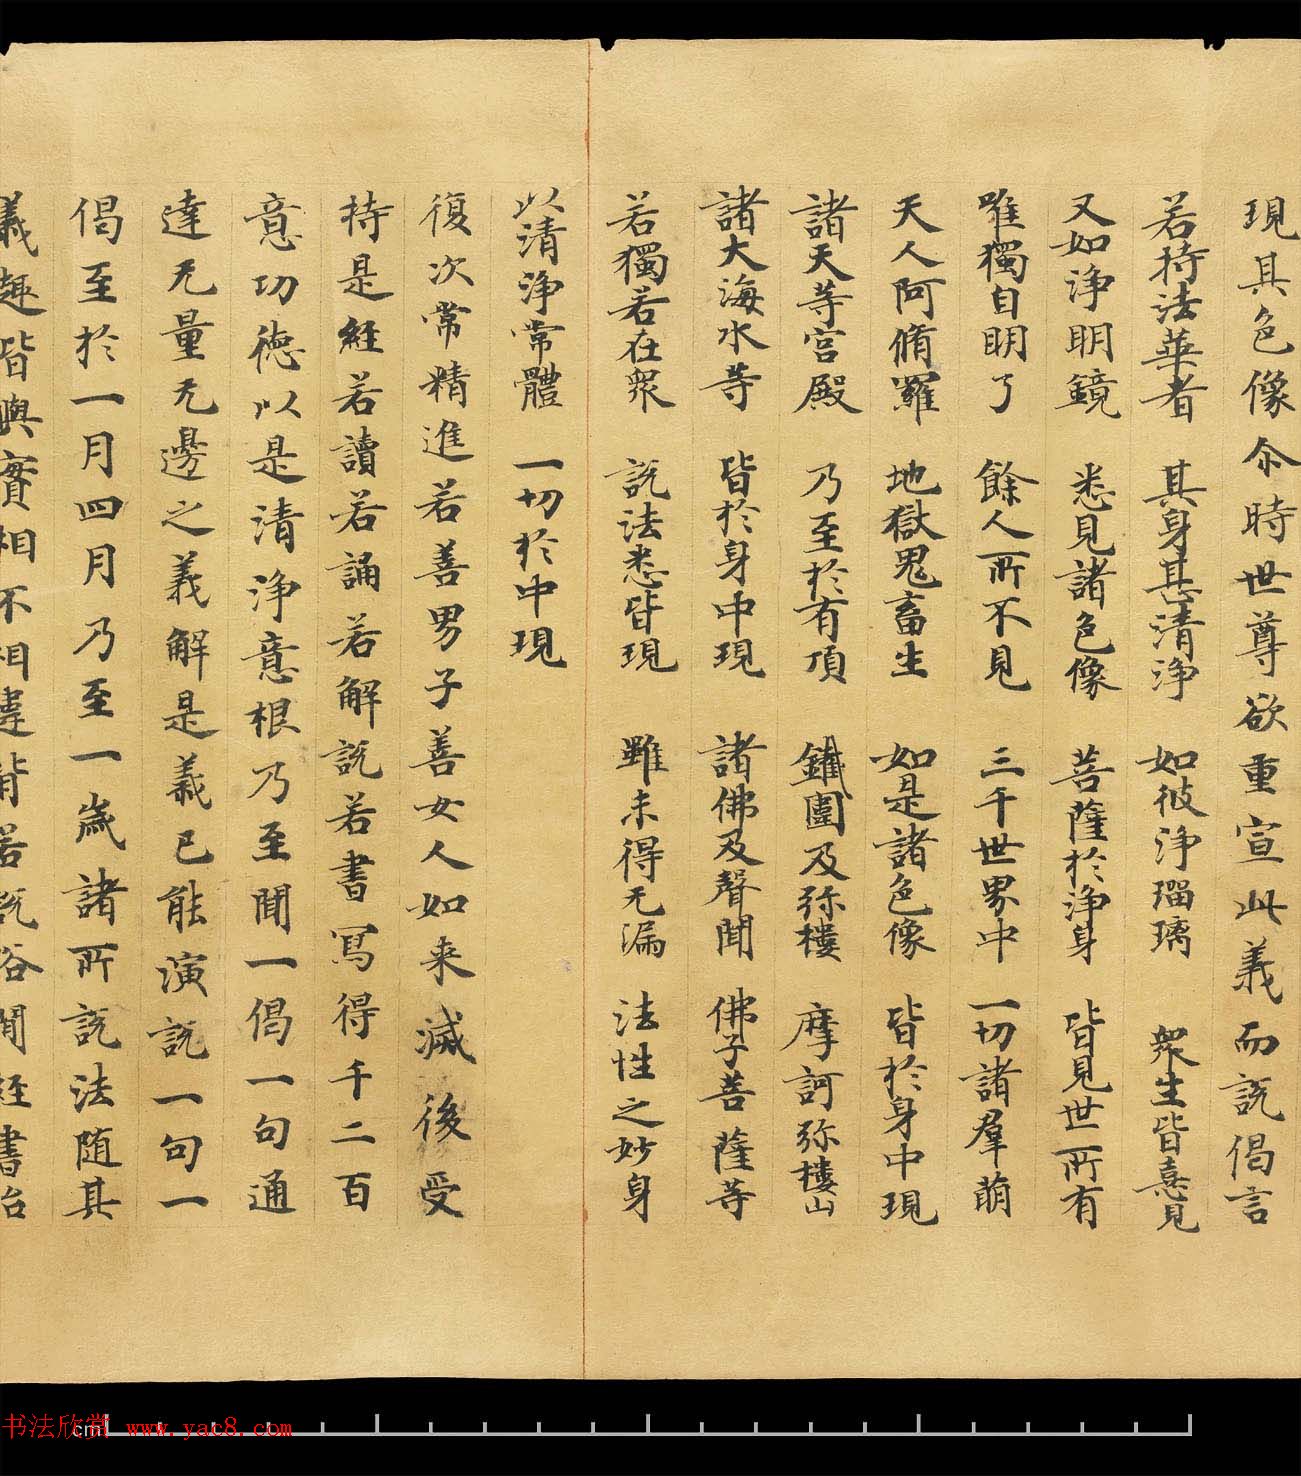 現其色像尒時世尊欲重宣此義而説偈言
若持法華者 其身甚清淨 如彼淨瑠璃 衆生皆憙見
又如淨明鏡 悉見諸色像 菩薩於淨身 皆見世所有
唯獨自明了 餘人所不見 三千世界中 一切諸羣萌
天人阿脩羅 地獄鬼畜生 如是諸色像 皆於身中現
諸天等宮殿 乃至於有頂 鐵圍及弥樓 摩訶弥樓山
諸大海水等 皆於身中現 諸佛及聲聞 佛子菩薩等
若獨若在衆 説法悉皆現 雖未得无漏 法性之妙身
以清淨常體 一切於中現
復次常精進若善男子善女人如来滅後受
持是經若讀若誦若解説若書寫得千二百
意功徳以是清淨意根乃至聞一偈一句通
達无量无邊之義解是義已能演説一句一
偈至於一月四月乃至一歳諸所説法随其
義趣皆與實相不相違背若説俗間經書治
书法欣赏 www.yac8.com
cm